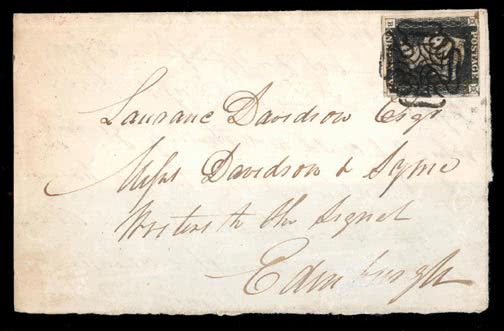 POSTAGE
Laurance Davidson Esqr
Messrs Davidson & Syme
Writers to the Signet
Edinburgh